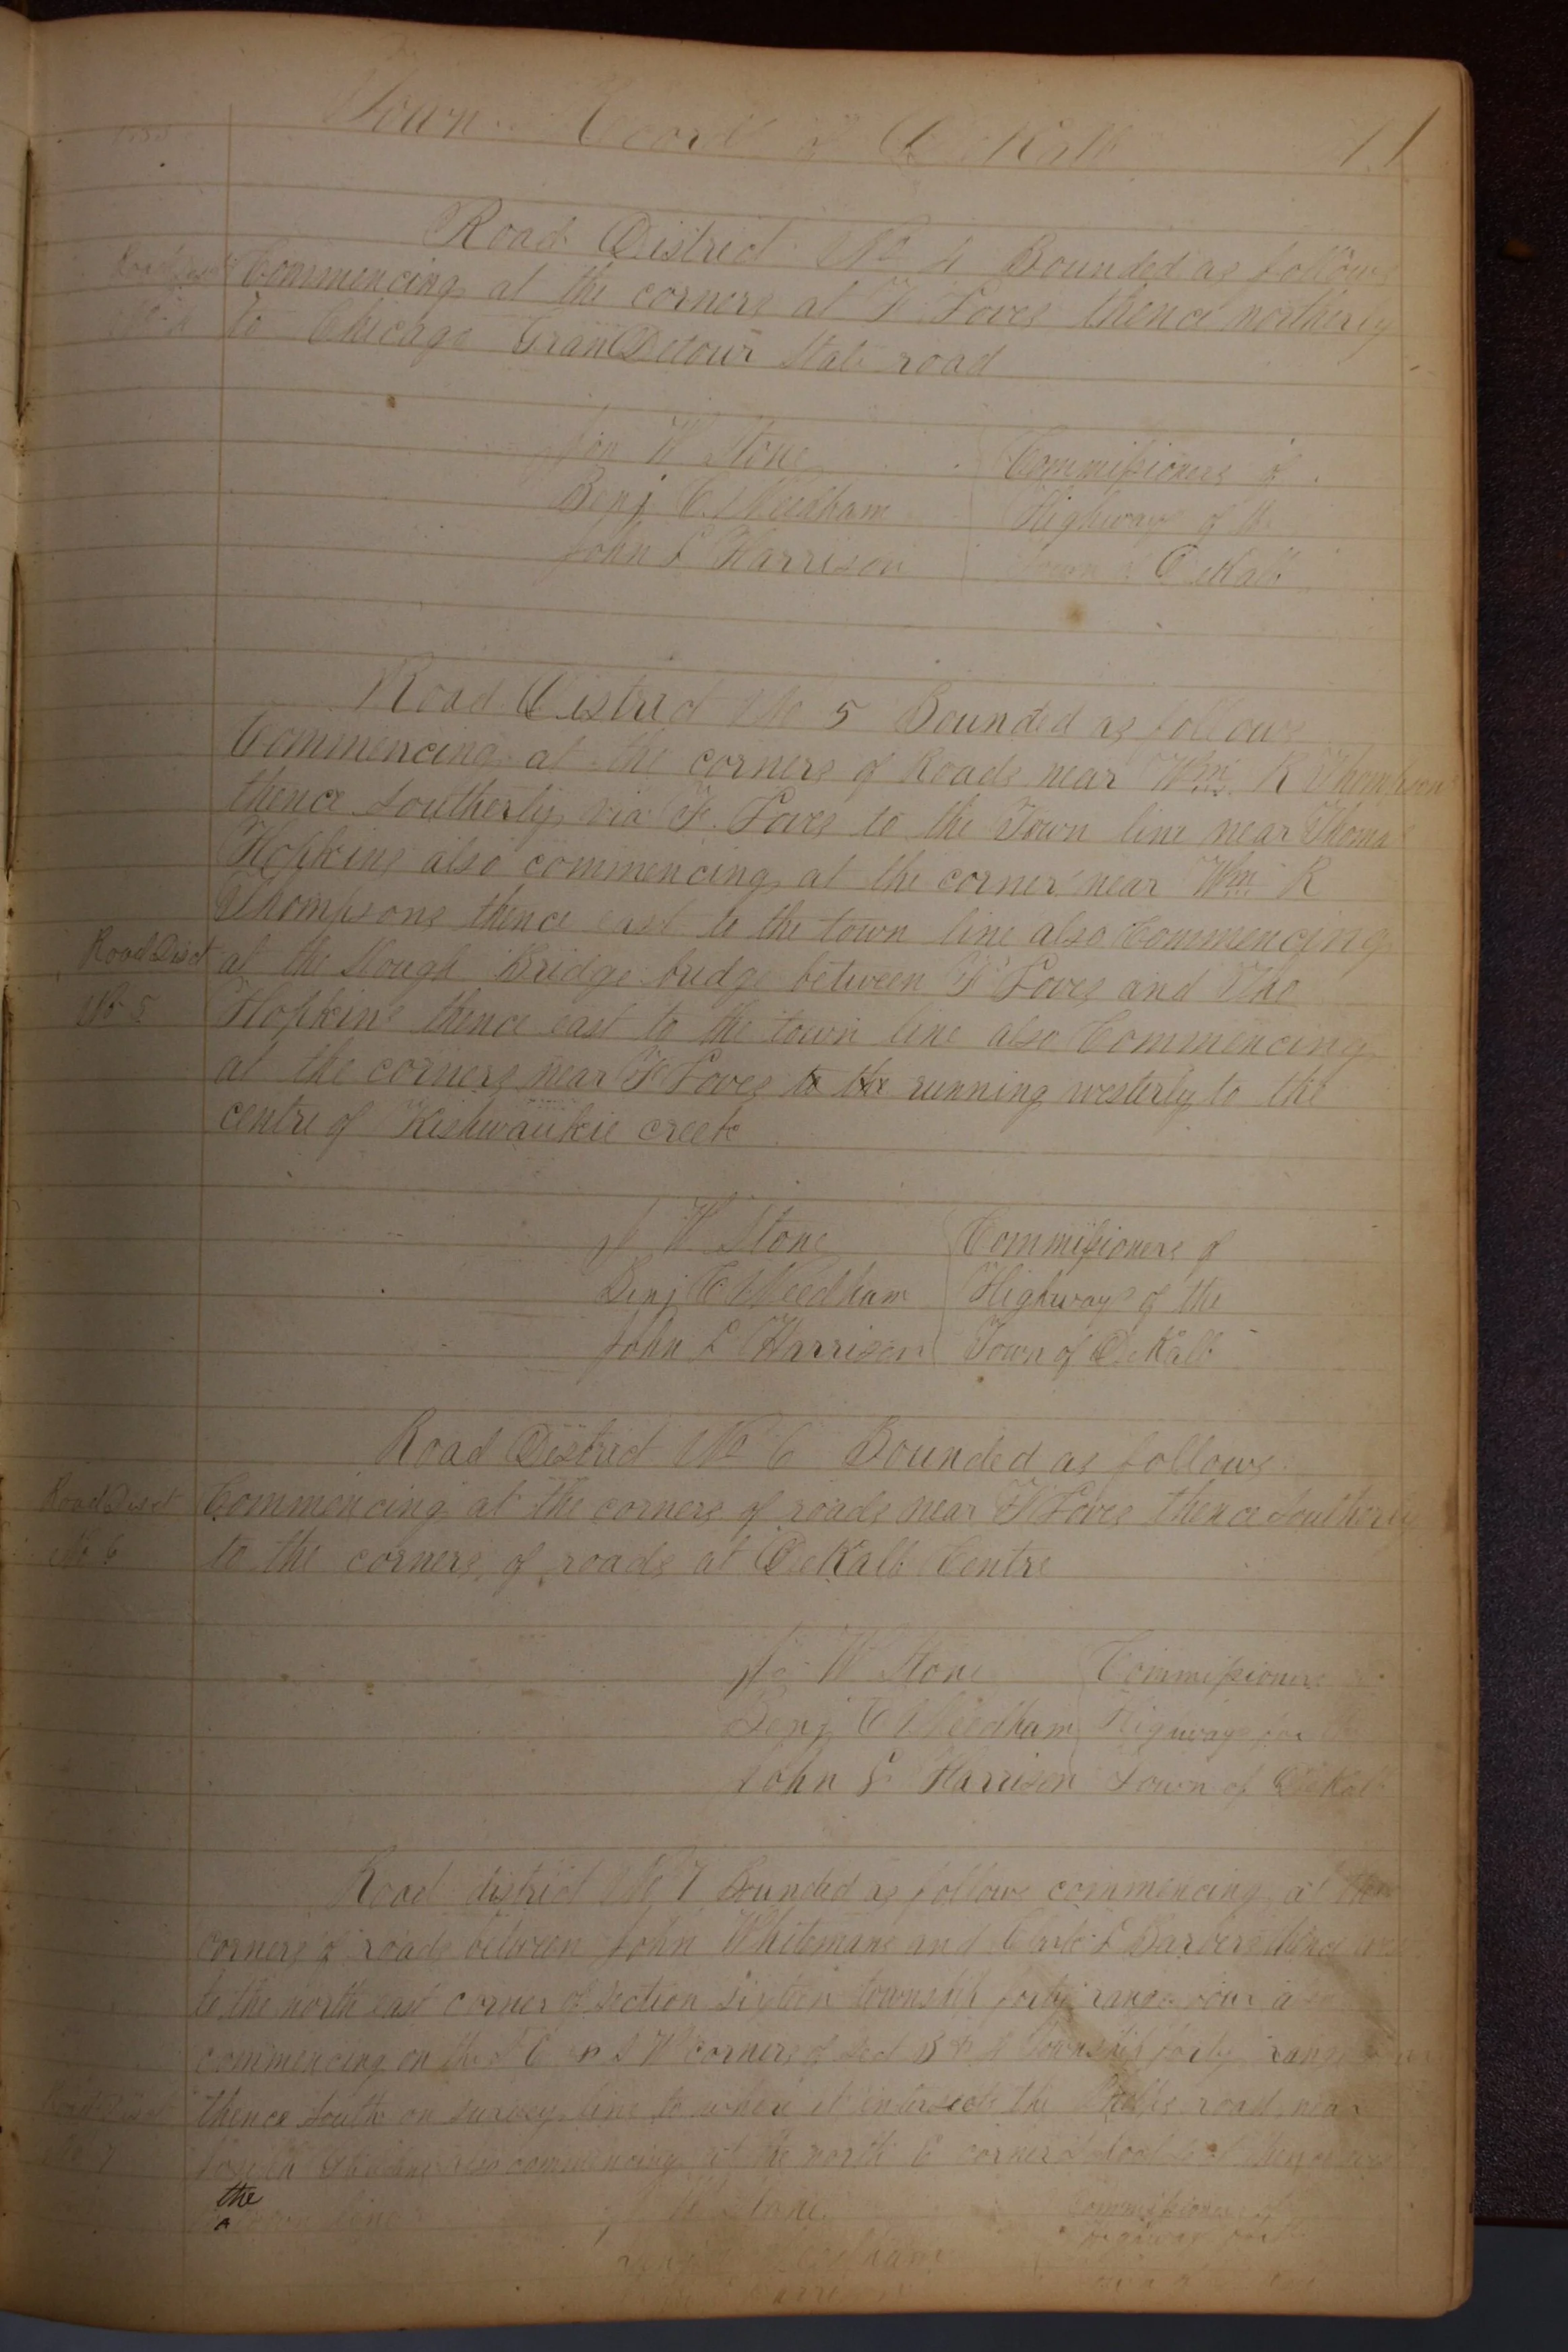 Town Record of DeKalb 11
Road District No 4 Bounded as follows
Road Dist Commencing at the corners at F. Loves thence northerly
No 4 to Chicago Gran Detour State road
W Stone Commissioners of
Benj C. Needham Highways of the
John L Harrison Town of DeKalb
Road District No 5 Bounded as follows
Commencing at the corners of Roads near Wm R Thompsons
thence Southerly via F. Loves to the Town line near Thomas
Hopkins also commencing at the corner near Wm R
Thompsons thence east to the town line also Commencing
Road Dist at the Slough Bridge bridge between F Loves and Tho
No 5 Hopkins thence east to the town line also Commencing
at the corners near F Loves to the running westerly to the
centre of Kishwaukie creek
W Stone Commissioners of
Benj C Needham Highways of the
John L Harrison Town of DeKalb
Road District No 6 Bounded as follows
Road Dist Commencing at the corners of roads near F Loves thence Southerly
No 6 to the corners of roads at DeKalb Centre
W Stone Commissioners
Benj C Needham Highways for
John L Harrison Town of DeKalb
Road district No 7 Bounded as follows commencing at the
corners of roads between John Whitemans and Clark L Barbers thence
to the north east corner of Section sixteen township forty range four also
commencing on the S E & S W corners of Sec township forty range
Road Dist thence South on survey line to where it intersects the road near
No 7 Joseph also commencing at the north E corner thence
the
town line Stone Commissioners of
Needham Highways for